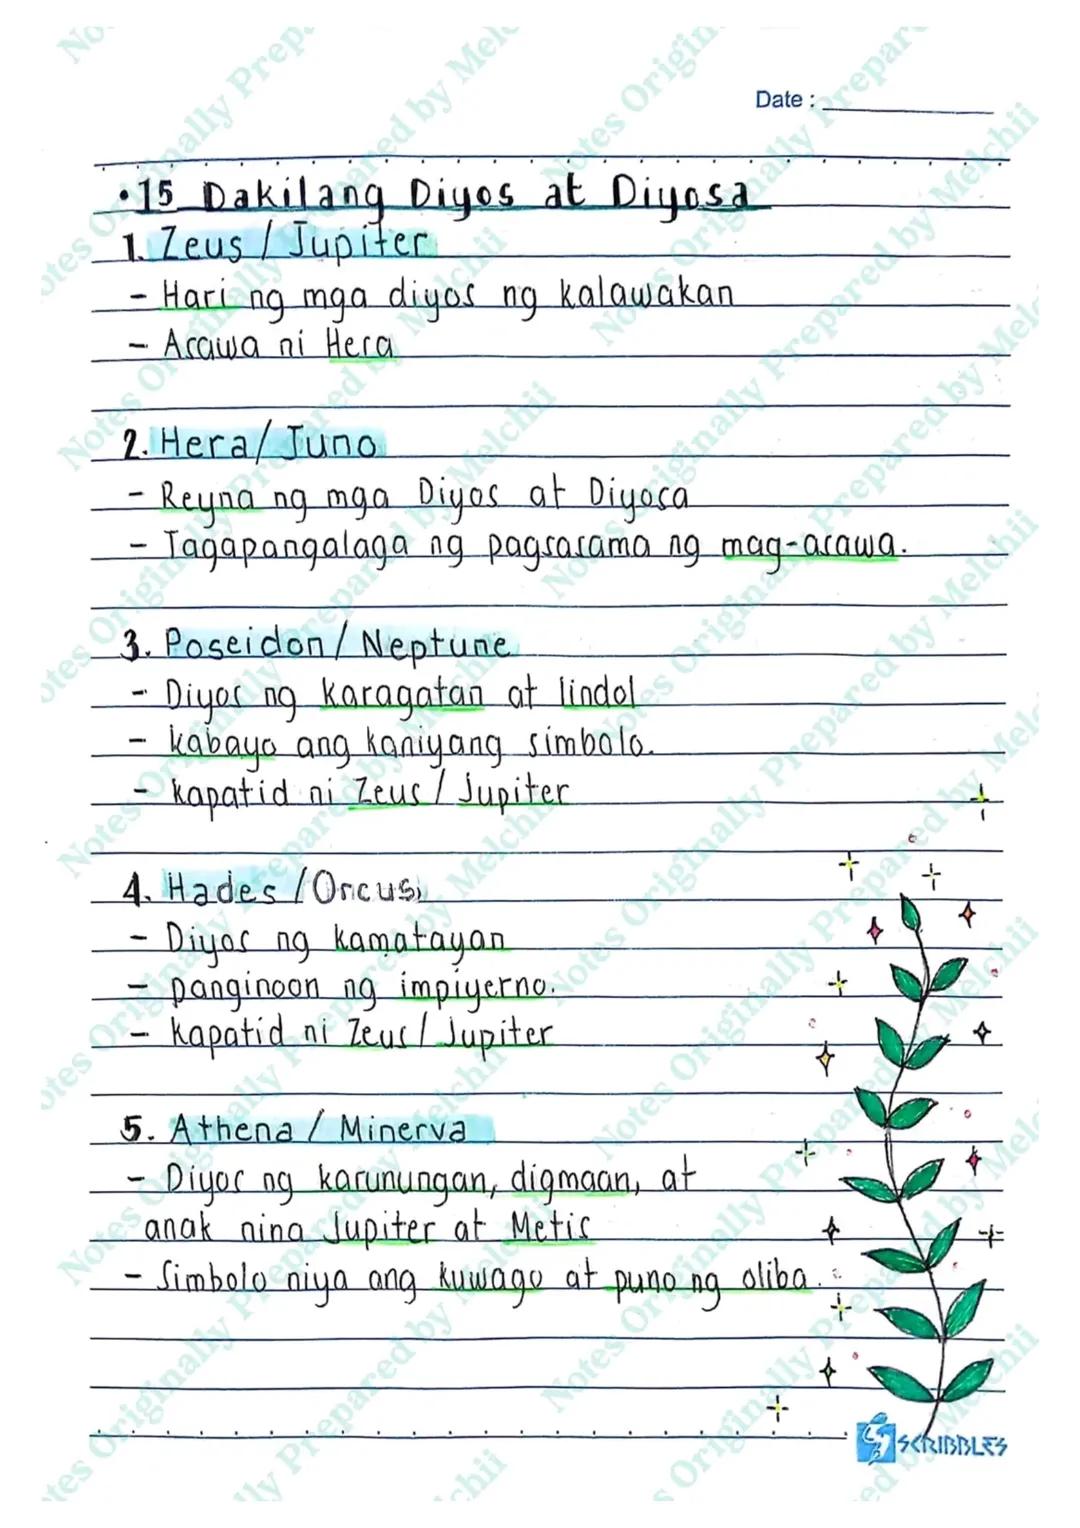 Date :
•15 Dakilang Diyos at Diyosa
1. Zeus / Jupiter
- Hari ng mga diyos ng kalawakan
- Asawa ni Hera
2. Hera/ Juno
- Reyna ng mga Diyos at Diyosa
- Tagapangalaga ng pagsasama ng mag-asawa.
3. Poseidon/ Neptune
- Diyos ng karagatan at lindol
- kabayo ang kaniyang simbolo.
- kapatid ni Zeus / Jupiter
4. Hades /Orcus
- Diyos ng kamatayan
- panginoon ng impiyerno.
- kapatid ni Zeus / Jupiter
5. Athena / Minerva
- Diyos ng karunungan, digmaan, at
anak nina Jupiter at Metis
- Simbolo niya ang kuwago at puno ng oliba.
SCRIBBLES
Notes Originally Prepared by Melchii